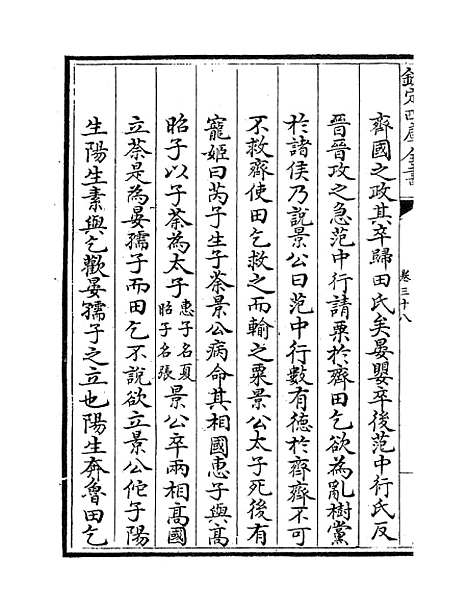 欽定四庫全書
卷三十八
齊國之政其卒歸田氏矣晏嬰卒後范中行氏反
晉晉攻之急范中行請粟於齊田乞欲為亂樹黨
於諸侯乃說景公曰范中行數有德於齊齊不可
不救齊使田乞救之而輸之粟景公太子死後有
寵姬曰芮子生子荼景公病命其相國惠子與高
昭子以子荼為太子惠子名夏昭子名張景公卒兩相高國
立荼是為晏孺子而田乞不說欲立景公佗子陽
生陽生素與乞歡晏孺子之立也陽生奔魯田乞